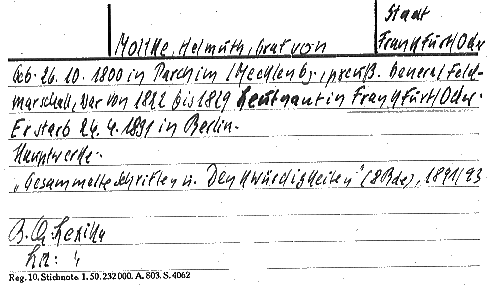 Stadt
Moltke, Helmuth, Graf von Frankfurt/Oder
Geb. 26. 10. 1800 in Parchim/Mecklenbg., preuß. General Feld-
marschall, war von 1822 bis 1829 Leutnant in Frankfurt/Oder.
Er starb 24. 4. 1891 in Berlin.
Hauptwerke:
„Gesammelte Schriften u. Denkwürdigkeiten" (8 Bde), 1891/93
Reg. 10. Stichnote 1. 50. 232000. A. 803. S. 4062